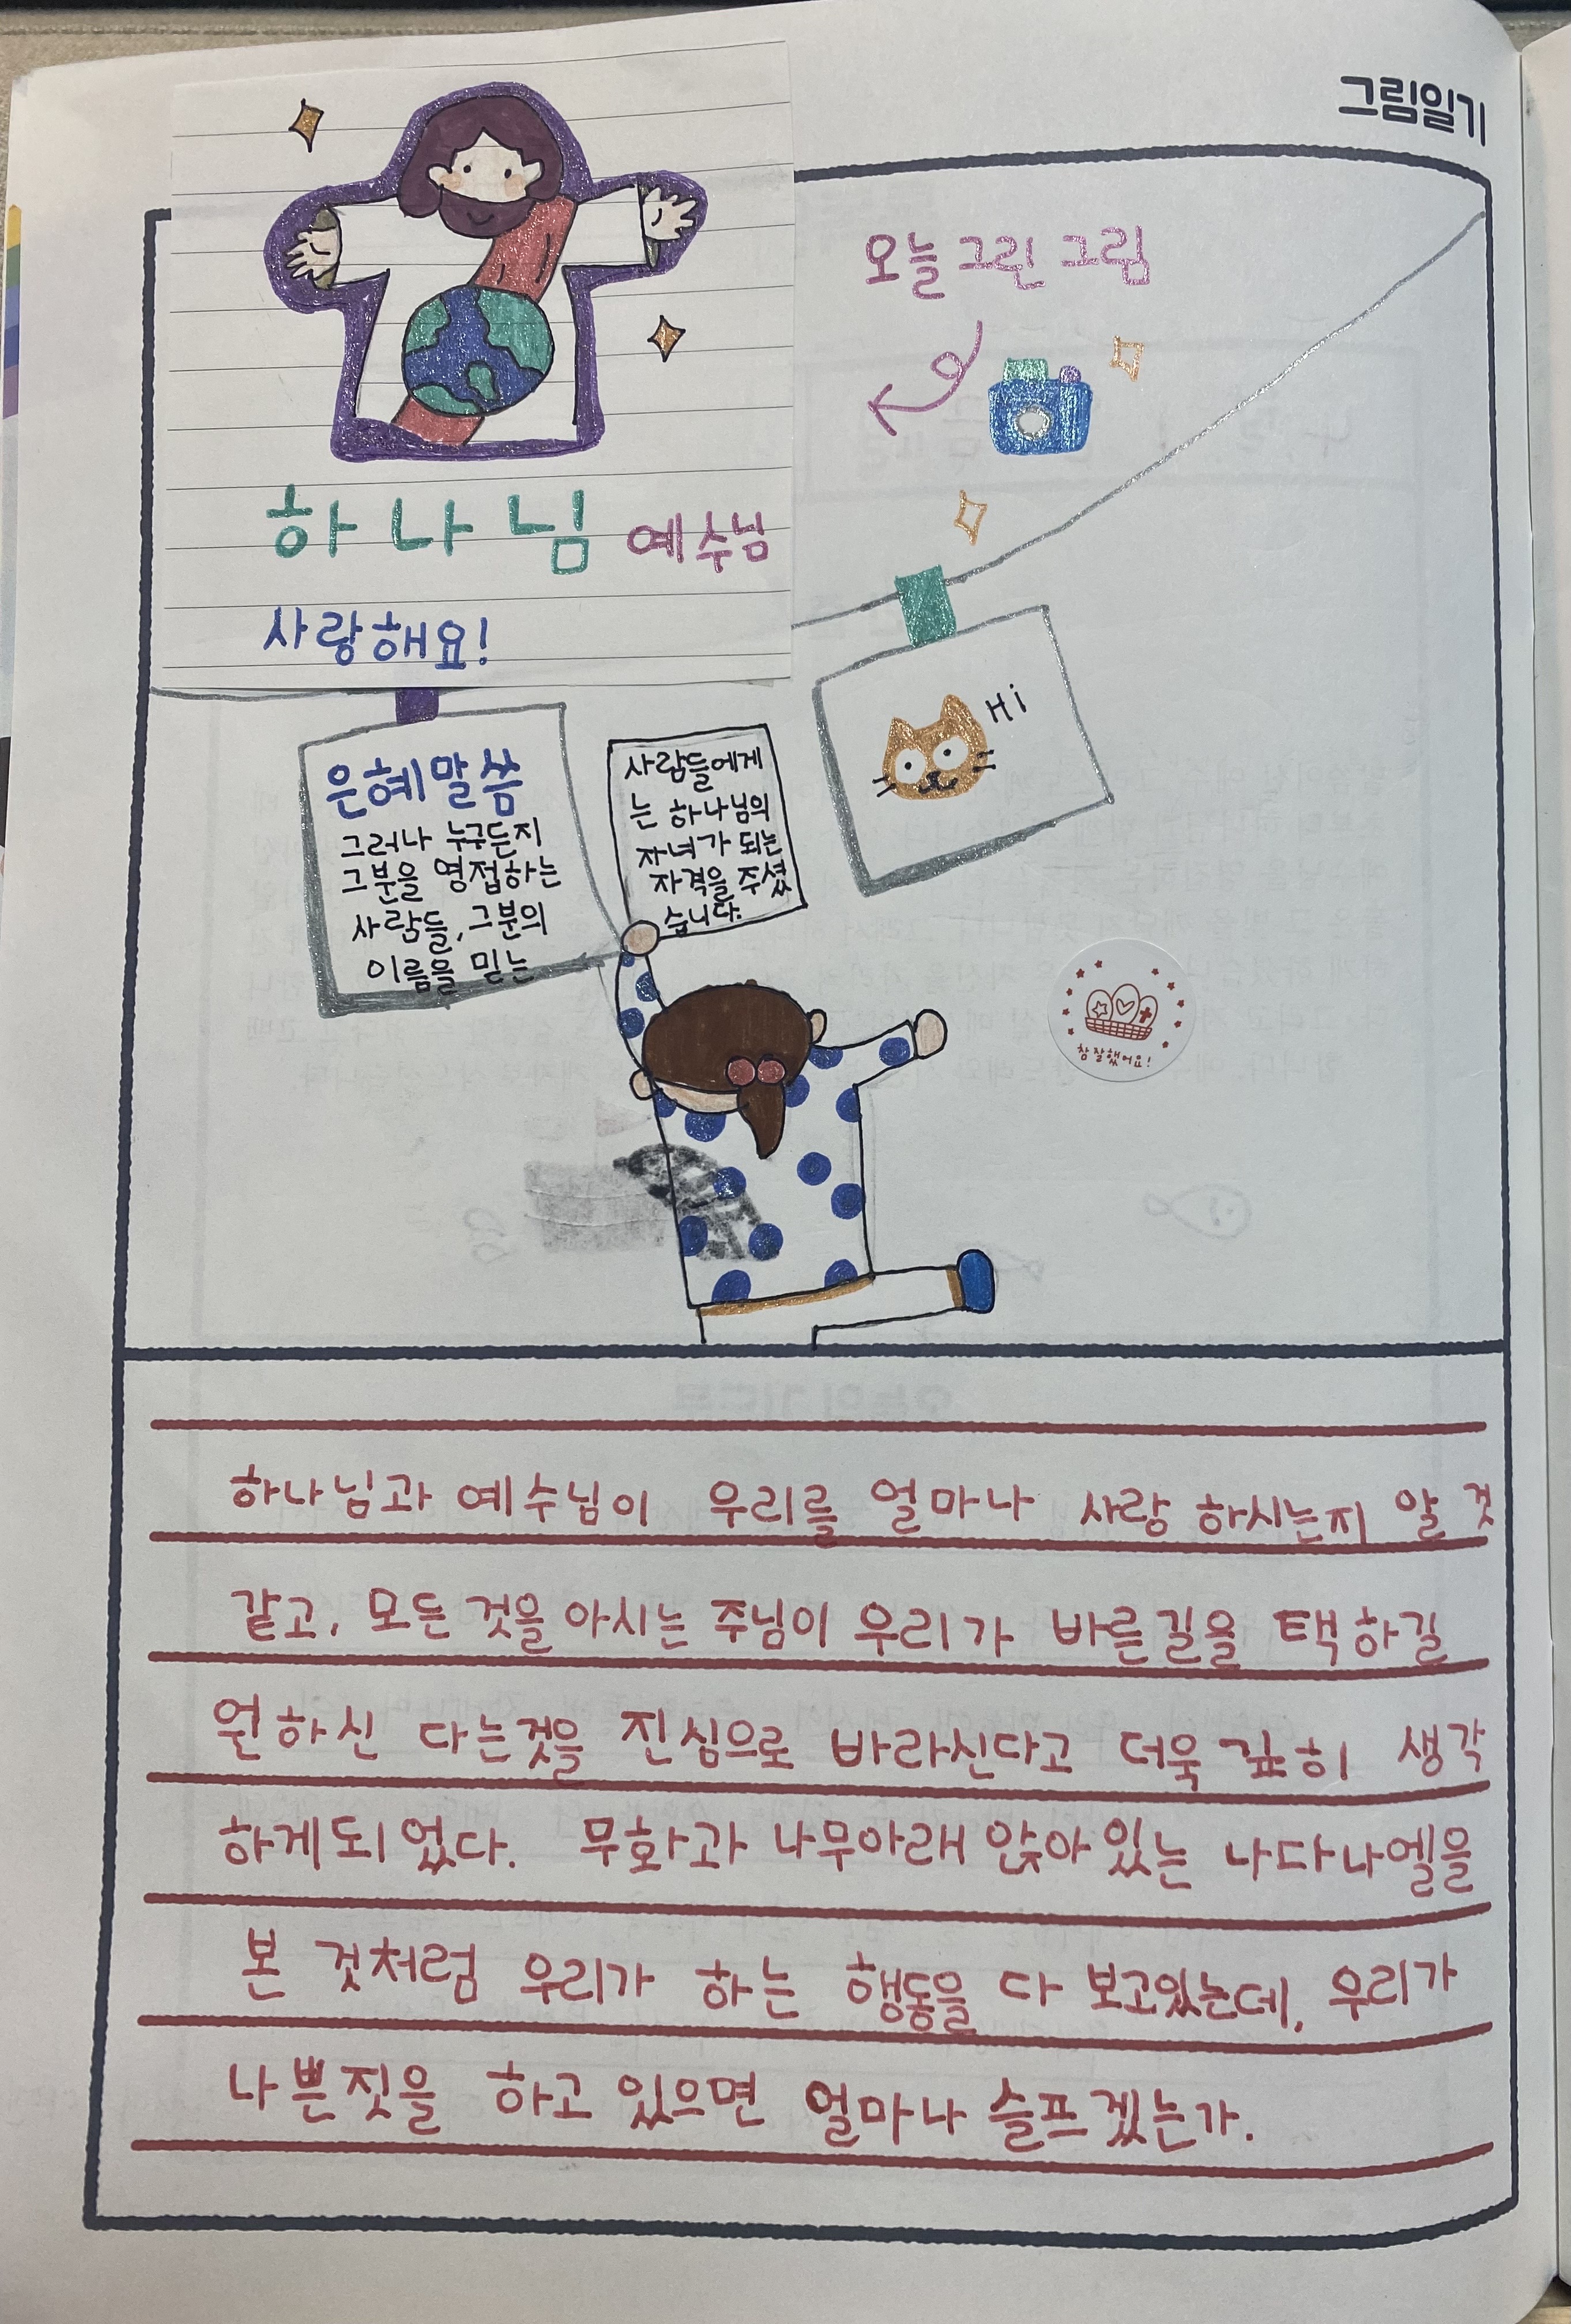 그림일기
오늘 그린 그림
하나님 예수님
사랑해요!
은혜말씀
그러나 누구든지
그분을 영접하는
사람들, 그분의
이름을 믿는
사람들에게
는 하나님의
자녀가 되는
자격을 주셨
습니다.
Hi
참 잘했어요!
하나님과 예수님이 우리를 얼마나 사랑 하시는지 알 것
같고, 모든 것을 아시는 주님이 우리가 바른길을 택하길
원하신 다는것을 진심으로 바라신다고 더욱 깊히 생각
하게되었다. 무화과 나무아래 앉아있는 나다나엘을
본 것처럼 우리가 하는 행동을 다 보고있는데, 우리가
나쁜짓을 하고 있으면 얼마나 슬프겠는가.